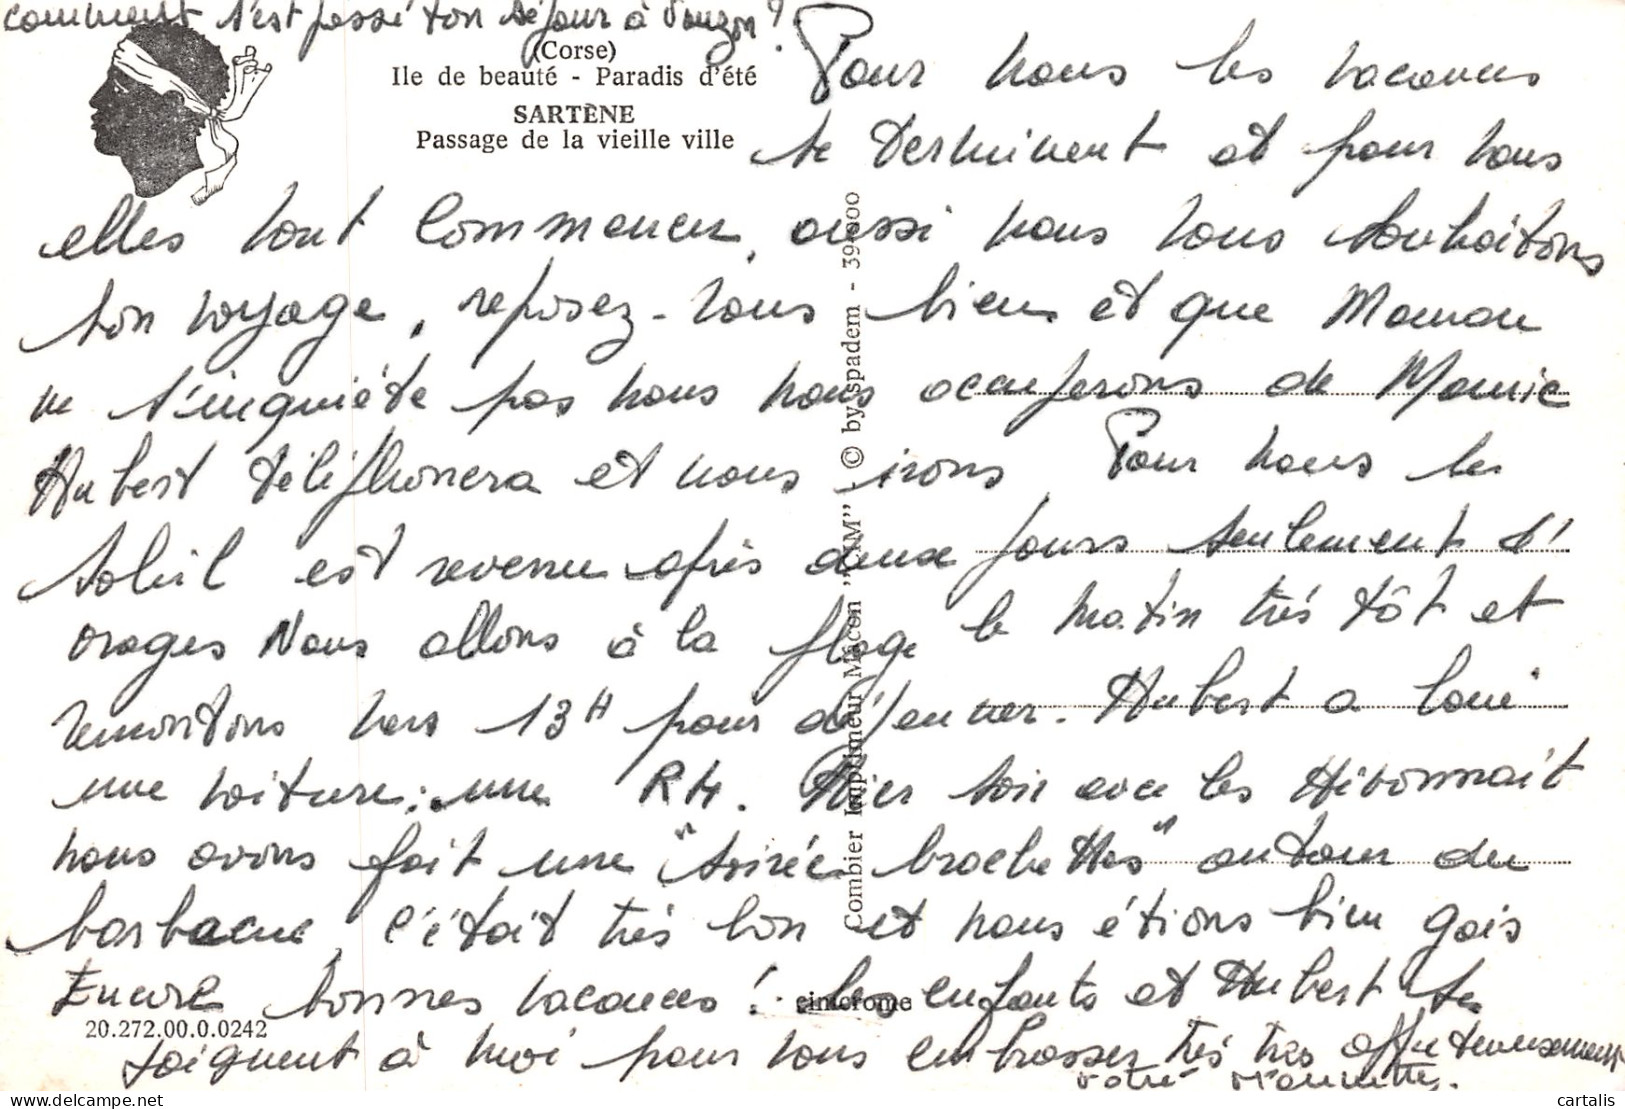 comment s'est passé ton séjour à Vouzon ?
(Corse)
Ile de beauté - Paradis d'été
SARTÈNE
Passage de la vieille ville
Pour nous les vacances
se terminent et pour vous
elles vont commencer, aussi nous vous souhaitons
bon voyage, reposez-vous bien et que Maman
ne s'inquiète pas nous nous occuperons de Mamie
Hubert téléphonera et nous irons Pour nous le
soleil est revenu après deux jours seulement d'
orages Nous allons à la plage le matin très tôt et
remontons vers 13H pour déjeuner. Hubert a loué
une voiture : une R4. Hier soir avec les
nous avons fait une "soirée brochettes" autour du
barbecue, c'était très bon et nous étions bien gais
Encore bonnes vacances ! Les enfants et Hubert se
joignent à moi pour vous embrasser très très affectueusement
votre
20.272.00.0.0242
cimcrome
Combier Imprimeur Mâcon "CIM" - © by spadem - 39-000
cartalis.com